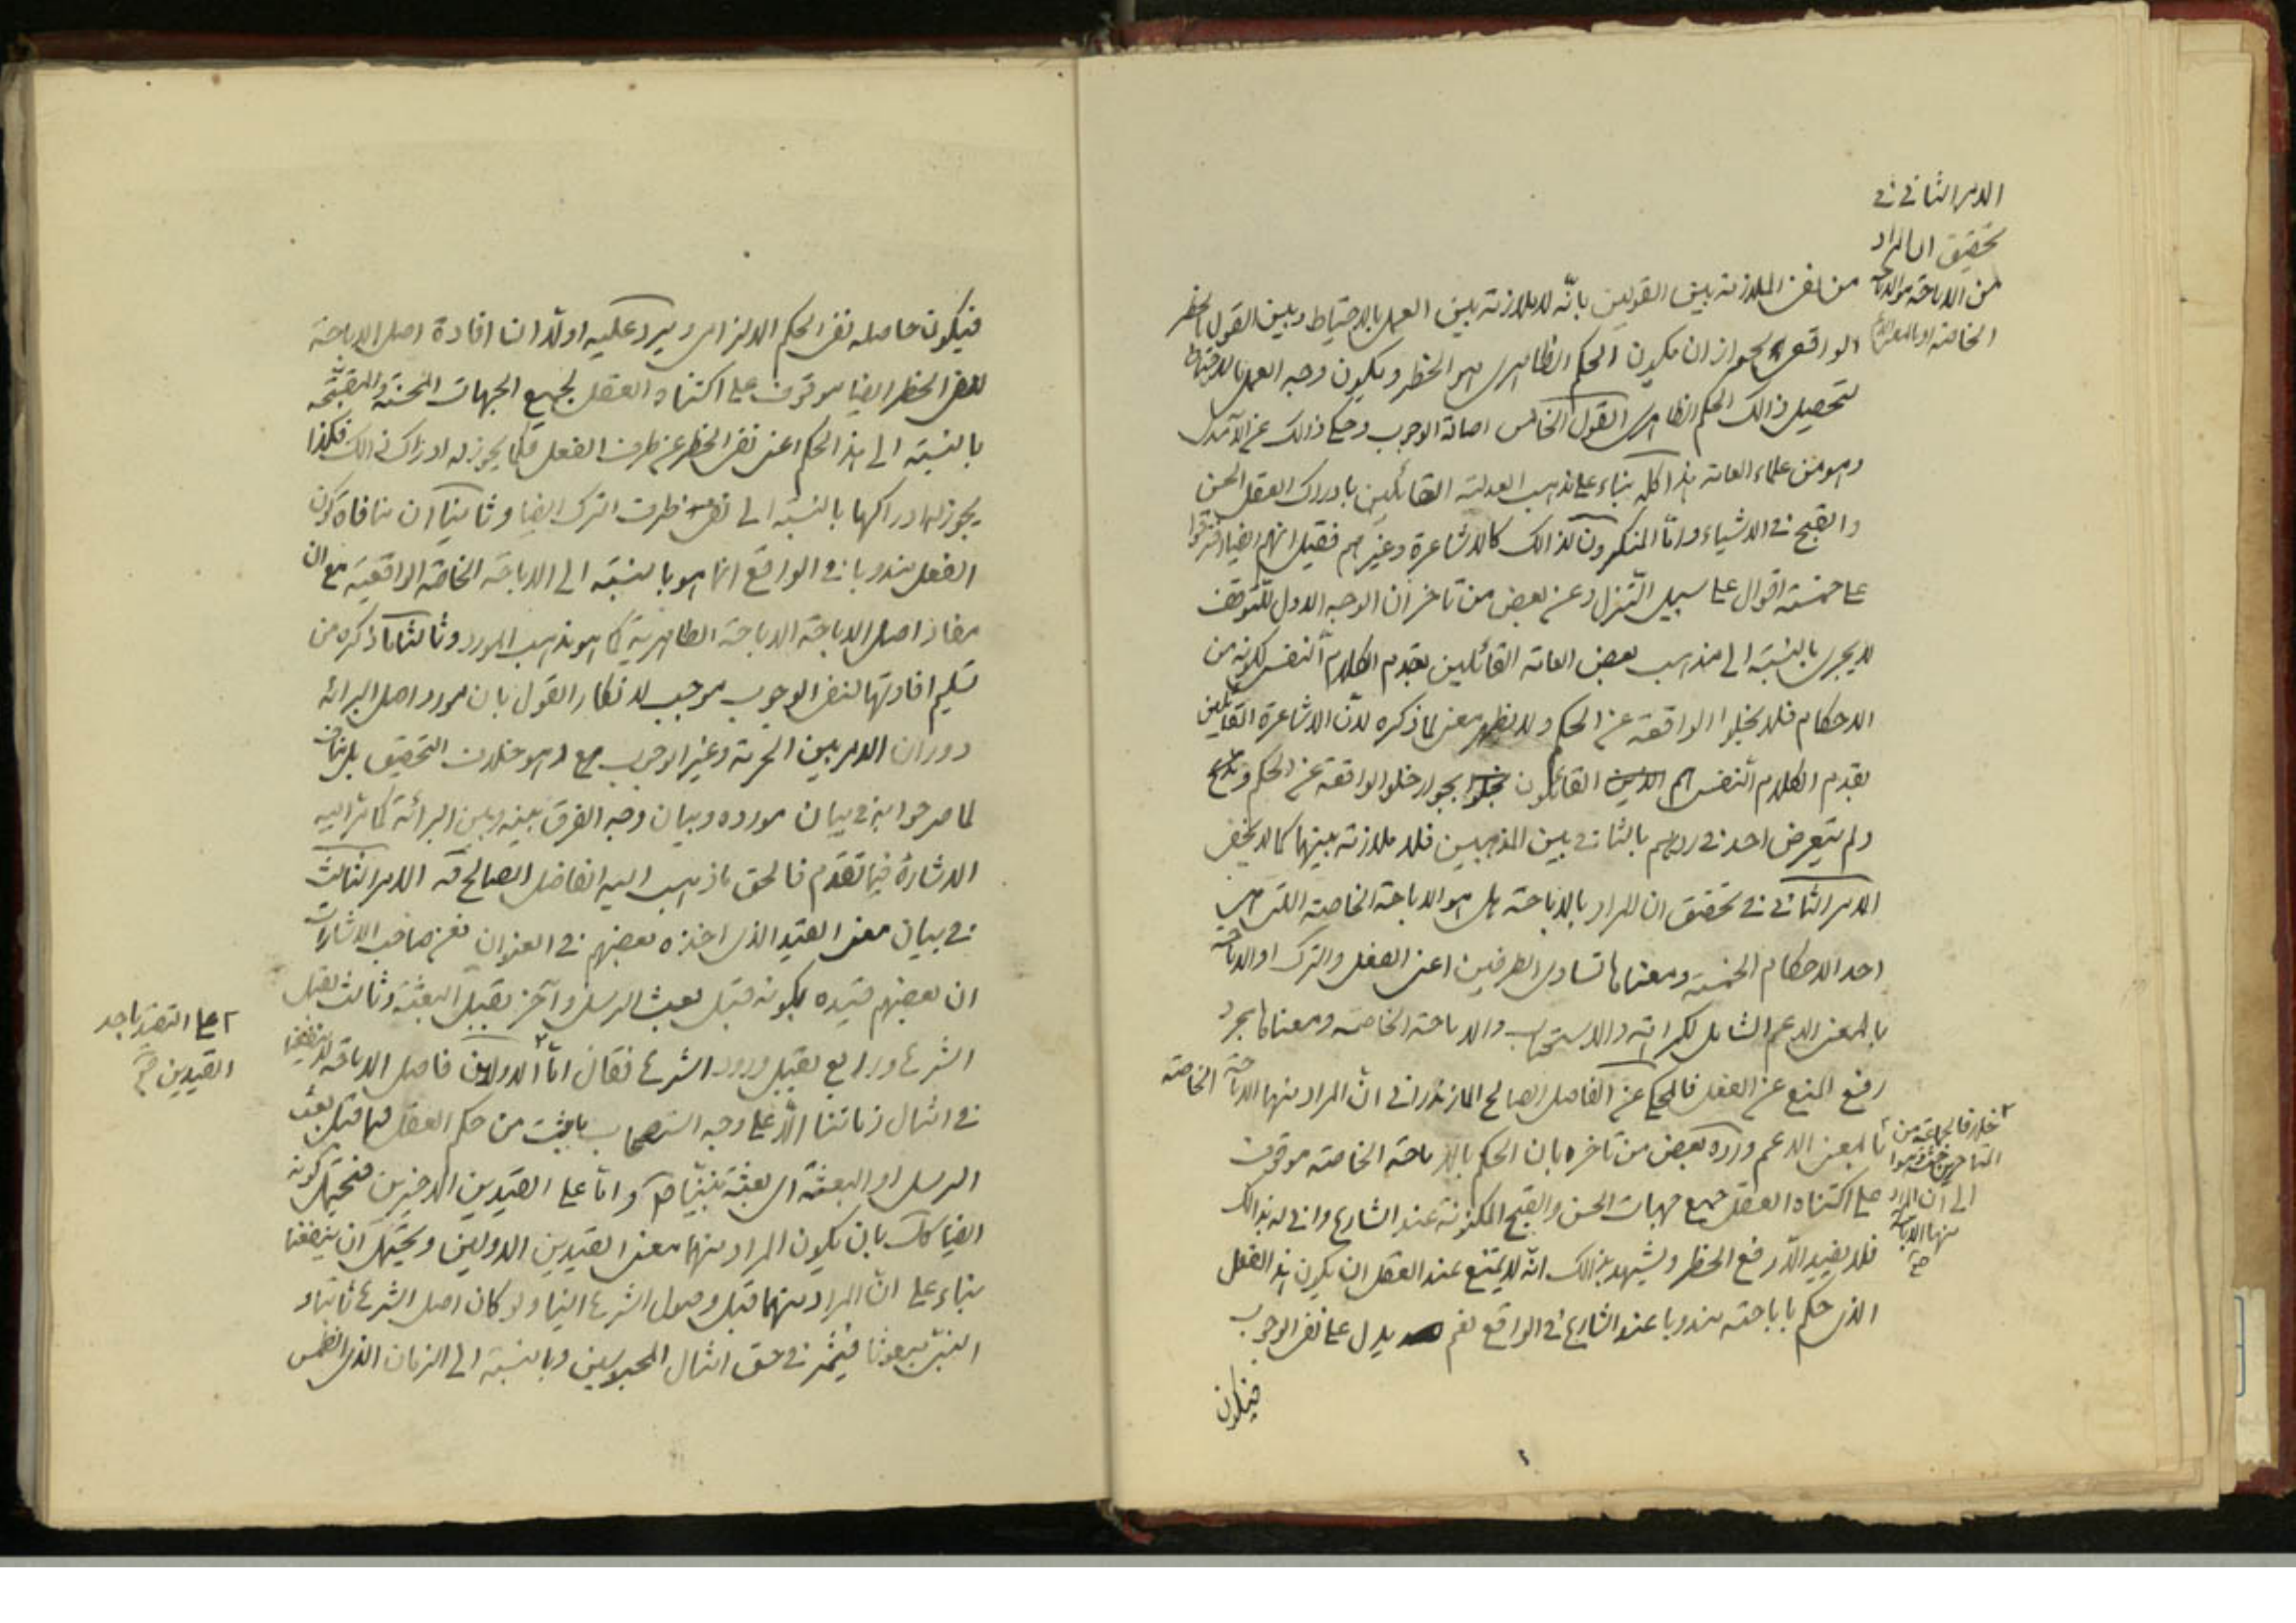 الامر الثاني في
تحقيق ان المراد
من الاباحة هو الاباحة
الخاصة او بالمعنى الاعم
من نفى الملازمة بين القولين بانه لا ملازمة بين العمل بالاحتياط وبين القول بالحظر
الواقعى لجواز ان يكون الحكم الظاهرى هو الحظر ويكون وجه العمل بالاحتياط
لتحصيل ذالك الحكم الظاهرى القول الخامس اصالة الوجوب وحكى ذالك عن الآمدى
وهو من علماء العامة هذا كله بناء على مذهب العدلية القائلين بادراك العقل الحسن
والقبح في الاشياء واما المنكرون لذالك كالاشاعرة وغيرهم فقيل انهم ايضا افترقوا
على خمسة اقوال على سبيل التنزل وعن بعض من تاخر ان الوجه الاول للتوقف
لا يجرى بالنسبة الى مذهب بعض العامة القائلين بقدم الكلام النفسى لكونه من
الاحكام فلا يخلوا الواقعة عن الحكم ولا يظهر معنى لما ذكره لان الاشاعرة القائلين
بقدم الكلام النفسى هم القائلون بجواز خلو الواقعة عن الحكم
ولم يتعرض احد في ردهم بالثانى بين المذهبين فلا ملازمة بينهما كما لا يخفى
الامر الثانى في تحقيق ان المراد بالاباحة هل هو الاباحة الخاصة التى هى
احد الاحكام الخمسة ومعناها تساوى الطرفين اعنى الفعل والترك او الاباحة
بالمعنى الاعم الشامل للكراهة والاستحباب والاباحة الخاصة ومعناها مجرد
رفع المنع عن الفعل فالمحكى عن الفاضل الصالح المازندرانى ان المراد منها الاباحة الخاصة
خلافا لجماعة من
المتاخرين حيث ذهبوا
الى ان المراد
منها الاباحة
صح
بالمعنى الاعم ورده بعض من تاخره بان الحكم بالاباحة الخاصة موقوف
على اكتناه العقل جميع جهات الحسن والقبح المكنونة عند الشارع وانى له بذالك
فلا يفيد الا رفع الحظر ويشهد بذالك انه لا يمتنع عند العقل ان يكون هذا الفعل
الذى حكم باباحته مندوبا عند الشارع في الواقع نعم يدل على نفى الوجوب
فيكون
فيكون حاصله نفى الحكم الالزامى ويرد عليه اولا ان افادة اصل الاباحة
لنفى الحظر ايضا موقوف على اكتناه العقل لجميع الجهات المحسنة والمقبحة
بالنسبة الى هذا الحكم اعنى نفى الحظر عن طرف الفعل فكما يجوز له ادراك ذالك فكذا
يجوز له ادراكها بالنسبة الى نفى طرف الترك ايضا وثانيا ان منافاة كون
الفعل مندوبا في الواقع انما هو بالنسبة الى الاباحة الخاصة الواقعية مع ان
مفاد اصل الاباحة الاباحة الظاهرية كما هو مذهب المورد وثالثا ما ذكره من
تسليم افادتها لنفى الوجوب موجب لانكار القول بان مورد اصل البرائة
دوران الامر بين الحرمة وغير الوجوب مع وهو خلاف التحقيق بل مناف
لما صرحوا به في بيان مورده وبيان وجه الفرق بينه وبين البرائة كما مر اليه
الاشارة فيما تقدم فالحق ما ذهب اليه الفاضل الصالح قه الامر الثالث
في بيان معنى القيد الذى اخذه بعضهم في العنوان فعن صاحب الاشارات
ان بعضهم قيده بكونه قبل بعث الرسل وآخر بقبل البعثة وثالث بقبل
الشرع ورابع بقبل ورود الشرع فقال اما الاولان فاصل الاباحة لا ينفعنا
على التقييد باحد
القيدين صح
في امثال زماننا الا على وجه استصحاب ما يثبت من حكم العقل فيما قبل بعث
الرسل او البعثة اى بعثة نبينا ص واما على القيدين الاخيرين فيحتمل كونه
ايضا كك بان يكون المراد منهما معنى القيدين الاولين ويحتمل ان ينفعنا
بناء على ان المراد منهما قبل وصول الشرع الينا ولو كان اصل الشرع ثابتا و
النبى مبعوثا فيثمر في حق امثال المحبوسين وبالنسبة الى الزمان الذى انطمس